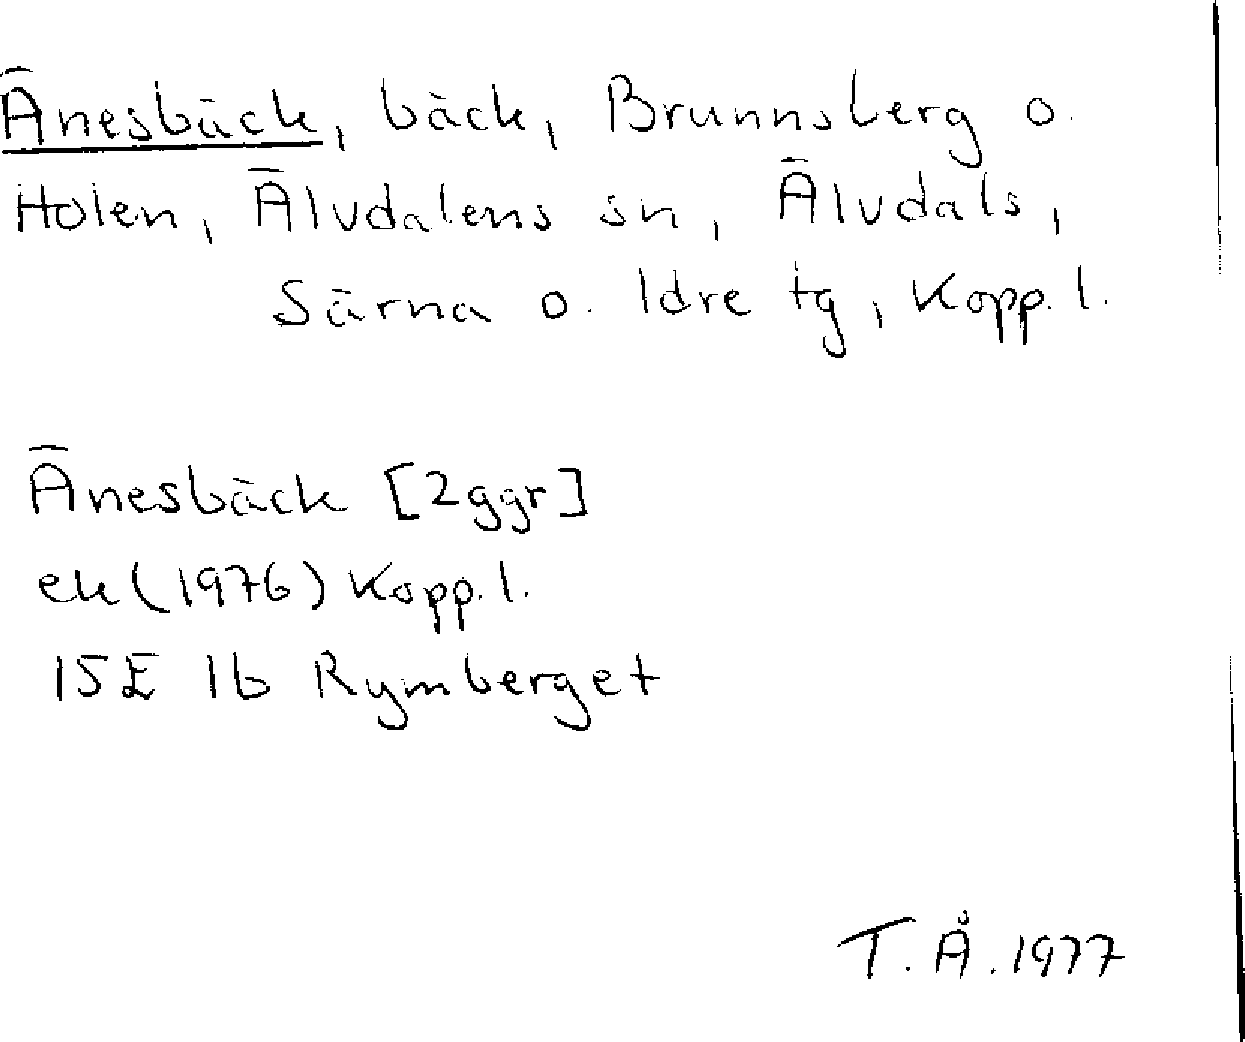 Änesbäck, bäck, Brunnsberg o.
Holen, Älvdalens sn, Älvdals,
Särna o. Idre tg, Kopp. l.
Änesbäck [2ggr]
ek (1976) Kopp. l.
15E 1b Rymberget
T. Å. 1977